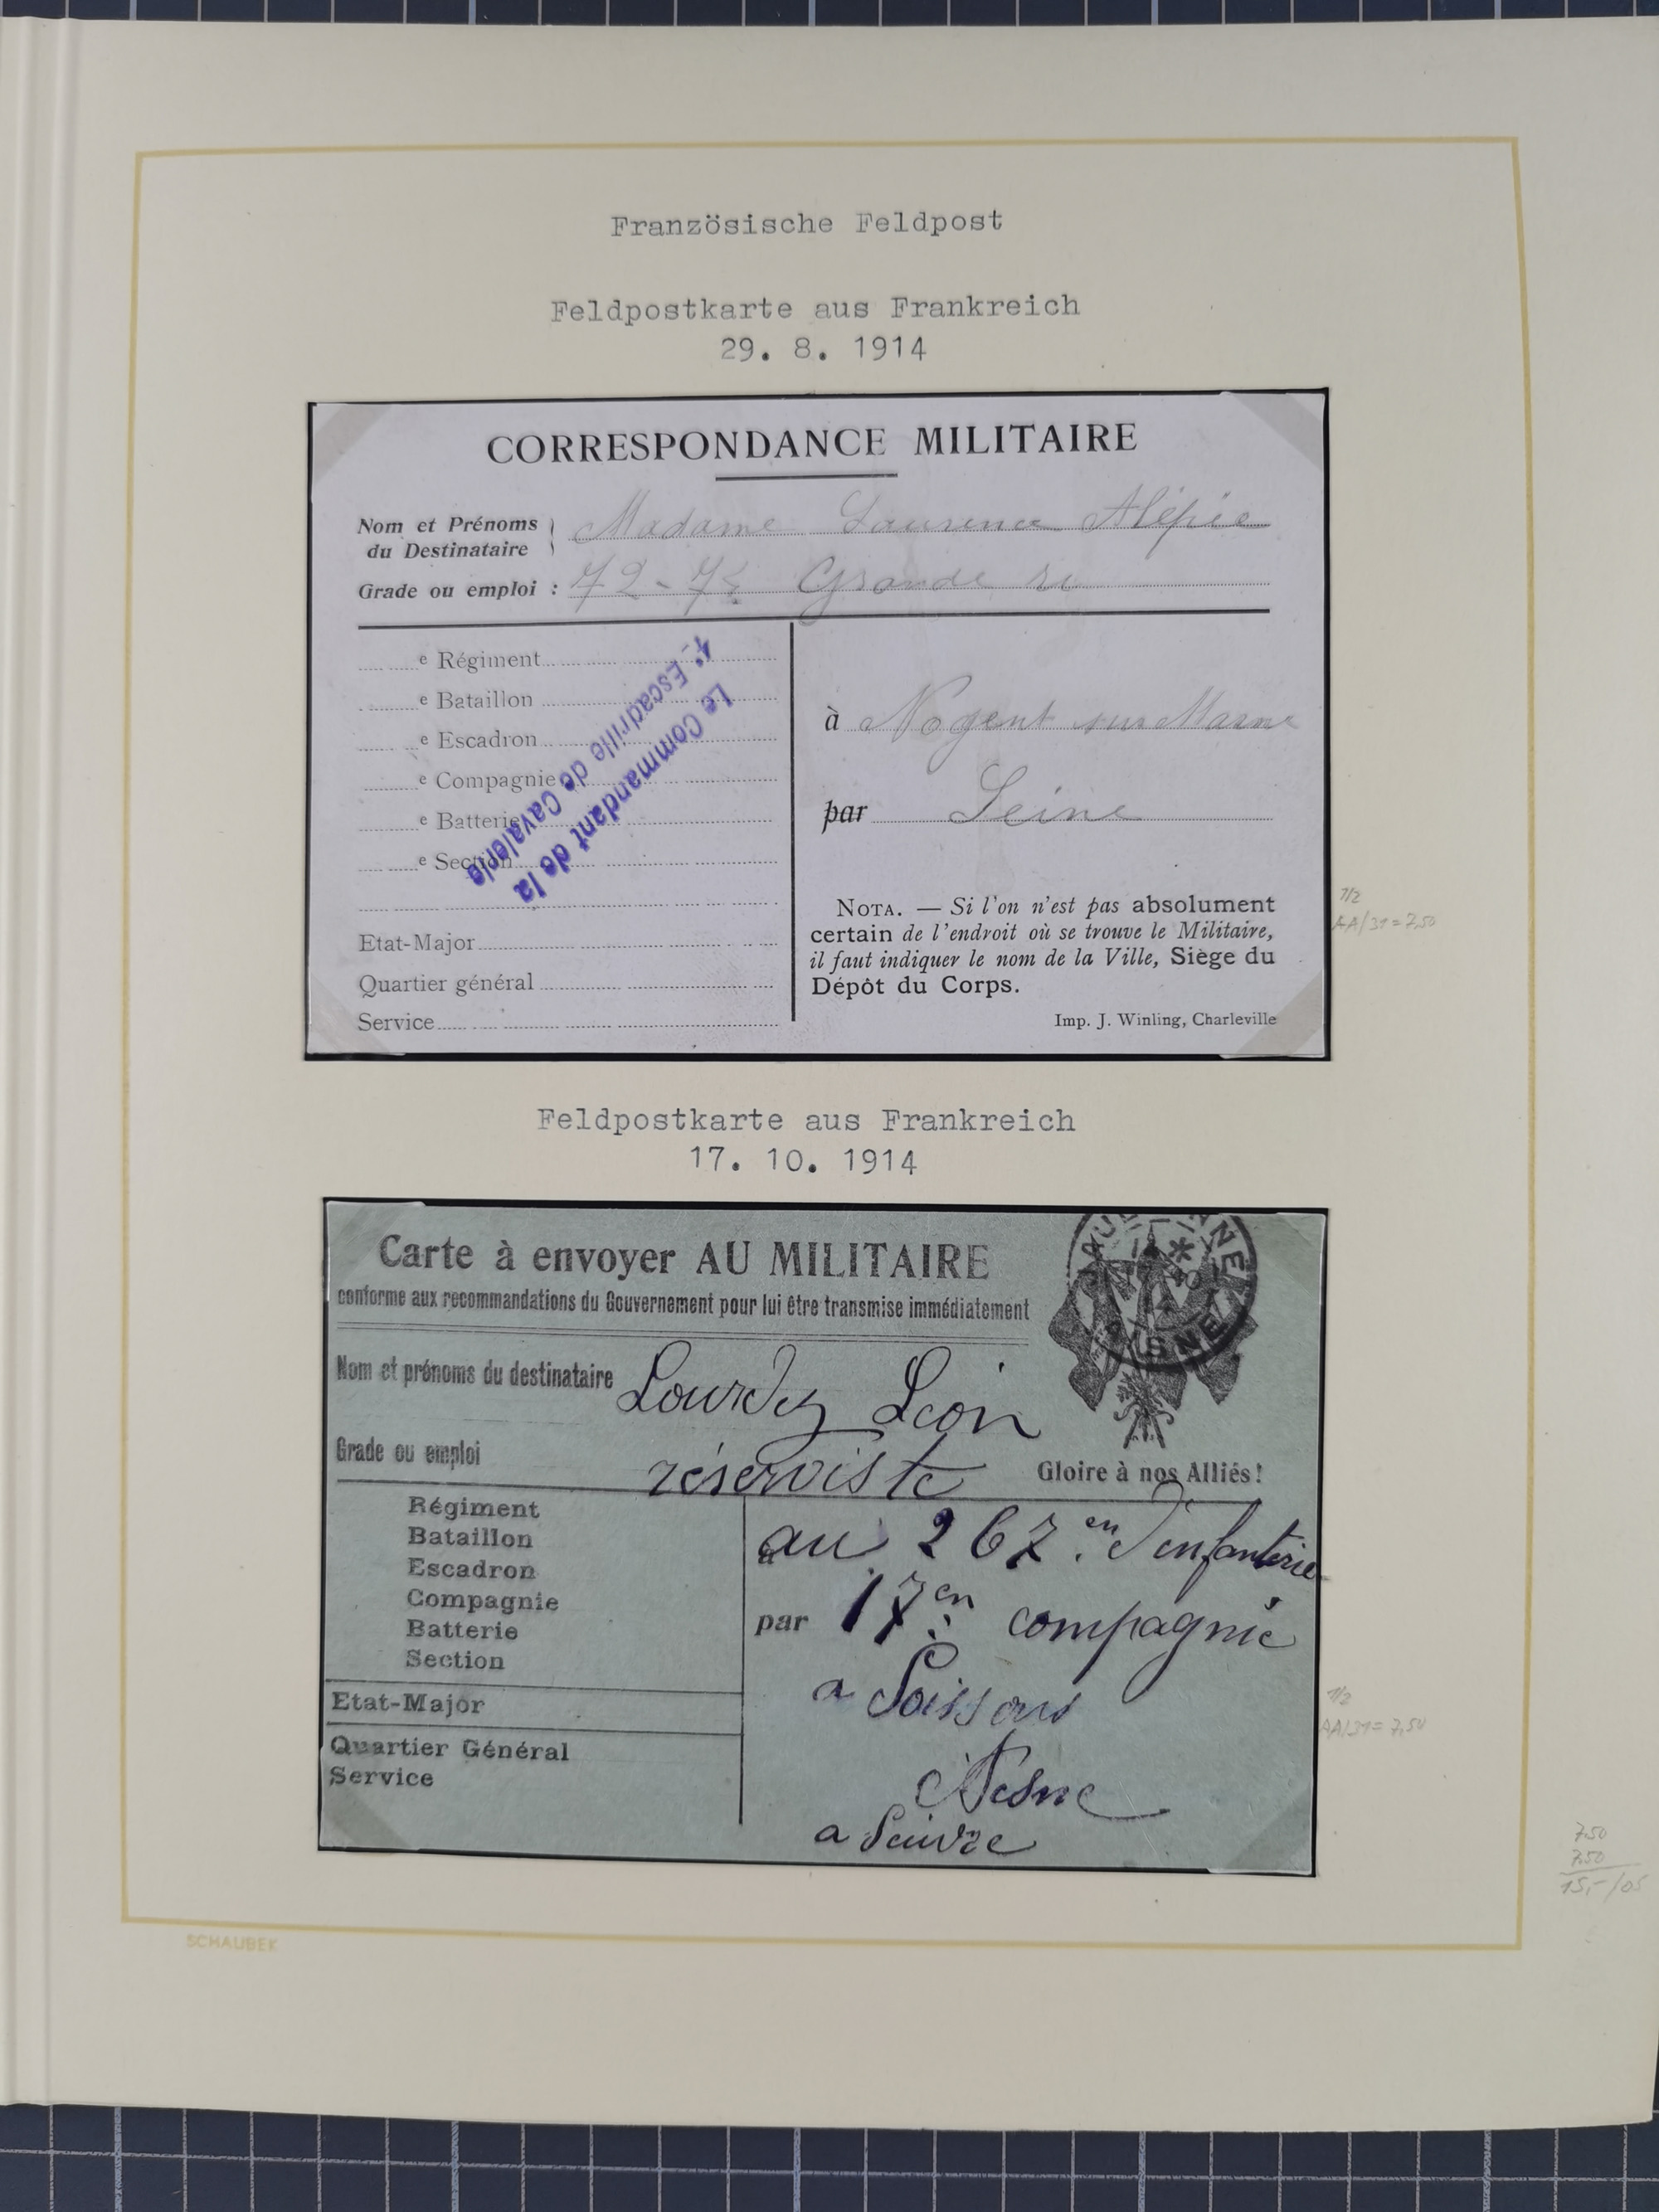 Französische Feldpost
Feldpostkarte aus Frankreich
29. 8. 1914
CORRESPONDANCE MILITAIRE
Nom et Prénoms
du Destinataire
Madame Laurence
Grade ou emploi :
72-7 Grande
e Régiment
e Bataillon
e Escadron
e Compagnie
e Batterie
e Section
Etat-Major
Quartier général
Service
Le Commandant de la
4e Escadrille de Cavalerie
à Nogent sur Marne
par Seine
NOTA. — Si l'on n'est pas absolument
certain de l'endroit où se trouve le Militaire,
il faut indiquer le nom de la Ville, Siège du
Dépôt du Corps.
Imp. J. Winling, Charleville
1/2
AA/31=7,50
Feldpostkarte aus Frankreich
17. 10. 1914
Carte à envoyer AU MILITAIRE
conforme aux recommandations du Gouvernement pour lui être transmise immédiatement
AISNE
Nom et prénoms du destinataire Lourdez Léon
Grade ou emploi réserviste
Gloire à nos Alliés!
Régiment
Bataillon
Escadron
Compagnie
Batterie
Section
Etat-Major
Quartier Général
Service
à au 267.en d'infanterie
par 17en compagnie
a Soissons
Aisne
a Suivre
1/2
AA/31=7,50
7,50
7,50
15,-/05
SCHAUBEK